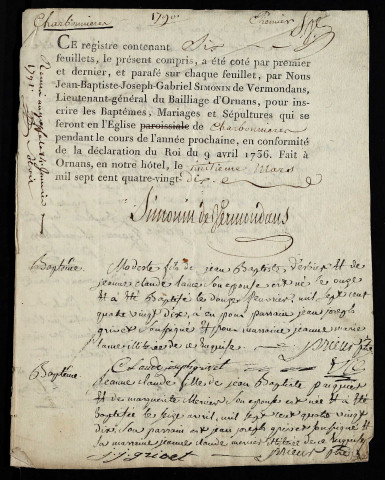 Charbonnieres 1790
CE registre contenant Six
feuillets, le présent compris, a été coté par premier
et dernier, et parafé sur chaque feuillet, par Nous
Jean-Baptiste-Joseph-Gabriel SIMONIN de Vermondans,
Lieutenant-général du Bailliage d'Ornans, pour ins-
crire les Baptêmes, Mariages et Sépultures qui se
feront en l'Eglise paroissiale de Charbonnieres
pendant le cours de l'année prochaine, en conformité
de la déclaration du Roi du 9 avril 1736. Fait à
Ornans, en notre hôtel, le huitieme Mars
mil sept cent quatre-vingt dix
Simonin de Vermondans
Baptême Modeste fils de jean Baptiste
jeanne claude son epouse est né le onze
Baptisé le douze fevrier, mil sept cent
quatre vingt dix, a eu pour parrain jean joseph
grivet soussigné et pour marraine jeanne marie
illiterée de ce enquise
Baptême jeanne claude fille de jean Baptiste
de marguerite Mercier son epouse est née
Baptisée le seize avril, mil sept cent quatre vingt
dix, son parrain est jean joseph grivet soussigné
sa marraine jeanne claude mercier illiterée de ce enquise
j j grivet